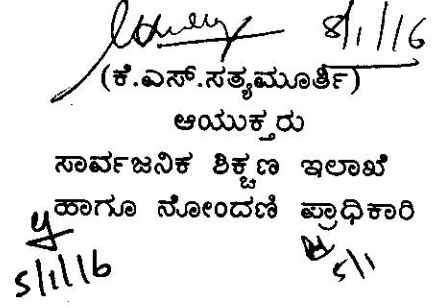 8/1/16
(ಕೆ.ಎಸ್.ಸತ್ಯಮೂರ್ತಿ)
ಆಯುಕ್ತರು
ಸಾರ್ವಜನಿಕ ಶಿಕ್ಷಣ ಇಲಾಖೆ
ಹಾಗೂ ನೋಂದಣಿ ಪ್ರಾಧಿಕಾರಿ
5/1/16 5/1